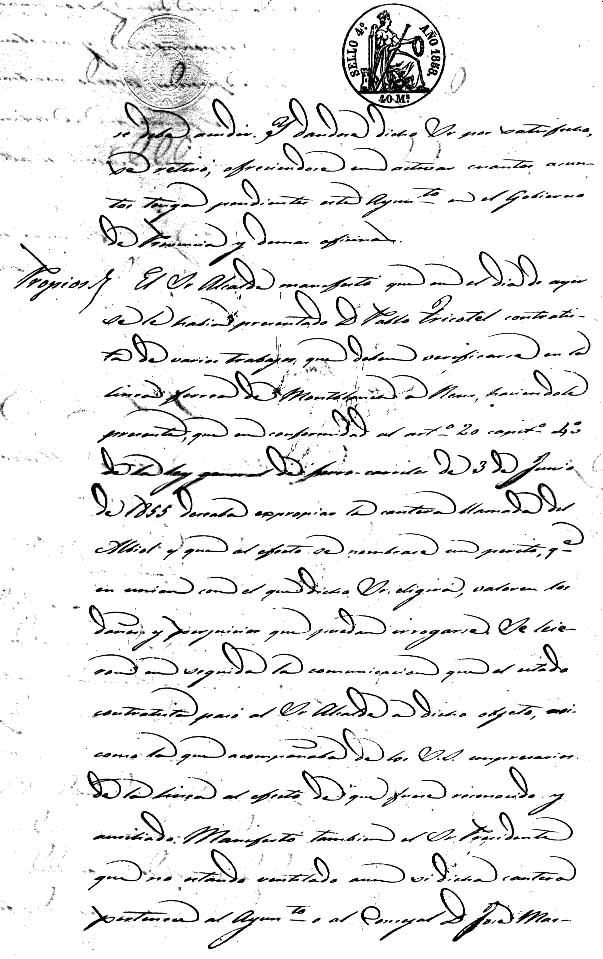 SELLO 4º AÑO 1859.
40 Mˢ
se deba acudir. Y dandose dicho Sr por satisfecho,
se retiró, ofreciendose en activar cuantos asun-
tos tenga pendientes este Ayunto en el Gobierno
de Provincia y demas oficinas.
Propios. El Sr Alcalde manifestó que en el dia de ayer
se le habia presentado D. Pablo contratis-
ta de varios trabajos, que deben verificarse en la
linea ferrea de Montblanch a Reus, haciendole
presente, que en conformidad al artº 20 capitº 4º
de la ley general de ferro-carriles de 3 de Junio
de 1855 deseaba expropiar la cantera llamada del
y que al efecto se nombrase un perito, qe
en union con el que dicho Sr eligira, valoren los
daños y perjuicios que puedan irrogarse. Se leie-
ron en seguida la comunicacion que el citado
contratista pasó al Sr Alcalde a dicho objeto, asi
como la que acompañaba de los S.S. empresarios
de la linea al efecto de que fuese reconocido y
auxiliado. Manifestó tambien el Sr Presidente
que no estando ventilado aun si dicha cantera
pertenece al Ayunto o al Concejal D. José Mar-